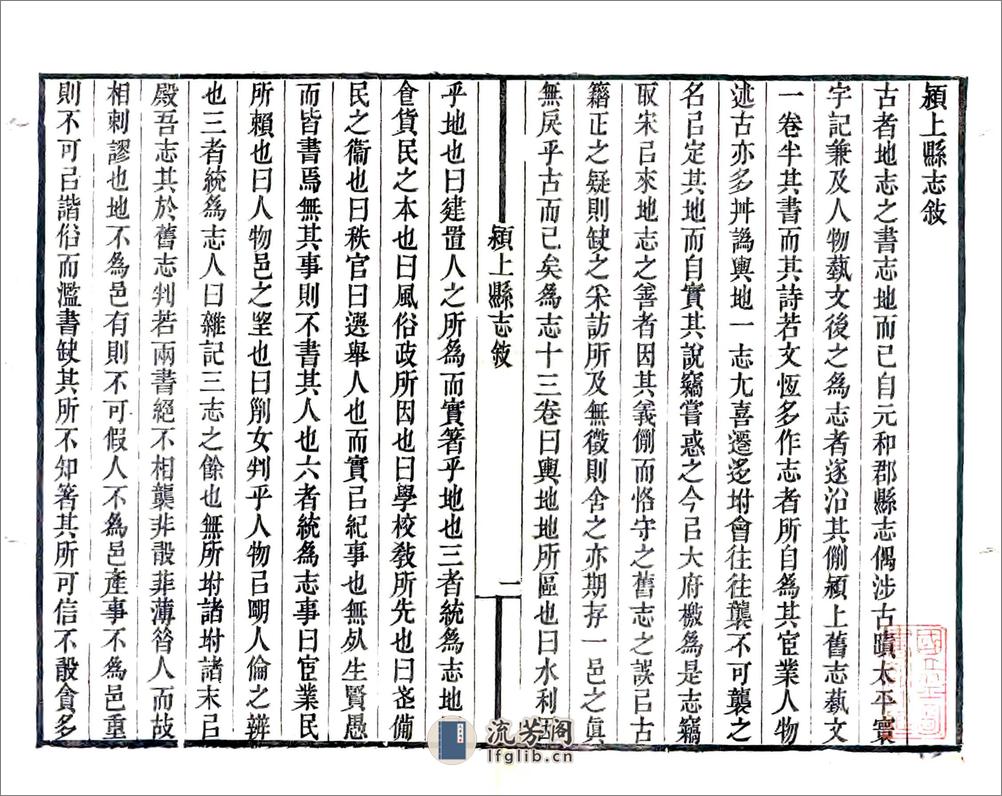 潁上縣志敘
古者地志之書志地而已自元和郡縣志偶涉古蹟太平寰
宇記兼及人物藝文後之爲志者遂沿其例潁上舊志藝文
一卷半其書而其詩若文恆多作志者所自爲其宦業人物
述古亦多舛譌輿地一志尤喜遷迻坿會往往襲不可襲之
名㠯定其地而自實其說竊嘗惑之今㠯大府檄爲是志竊
取宋㠯來地志之善者因其義例而恪守之舊志之誤㠯古
籍正之疑則缺之采訪所及無徵則舍之亦期存一邑之眞
無戾乎古而已矣爲志十三卷曰輿地地所區也曰水利
潁上縣志敘
一
乎地也曰建置人之所爲而實箸乎地也三者統爲志地
食貨民之本也曰風俗政所因也曰學校敎所先也曰武備
民之衞也曰秩官曰選舉人也而實㠯紀事也無㕣生賢愚
而皆書焉無其事則不書其人也六者統爲志事曰宦業民
所賴也曰人物邑之望也曰列女判乎人物㠯朙人倫之辨
也三者統爲志人曰雜記三志之餘也無所坿諸坿諸末㠯
殿吾志其於舊志判若兩書絕不相襲非敢菲薄昝人而故
相剌謬也地不爲邑有則不可假人不爲邑產事不爲邑重
則不可㠯諧俗而濫書缺其所不知箸其所可信不敢貪多
流芳閣
lfglib.cn